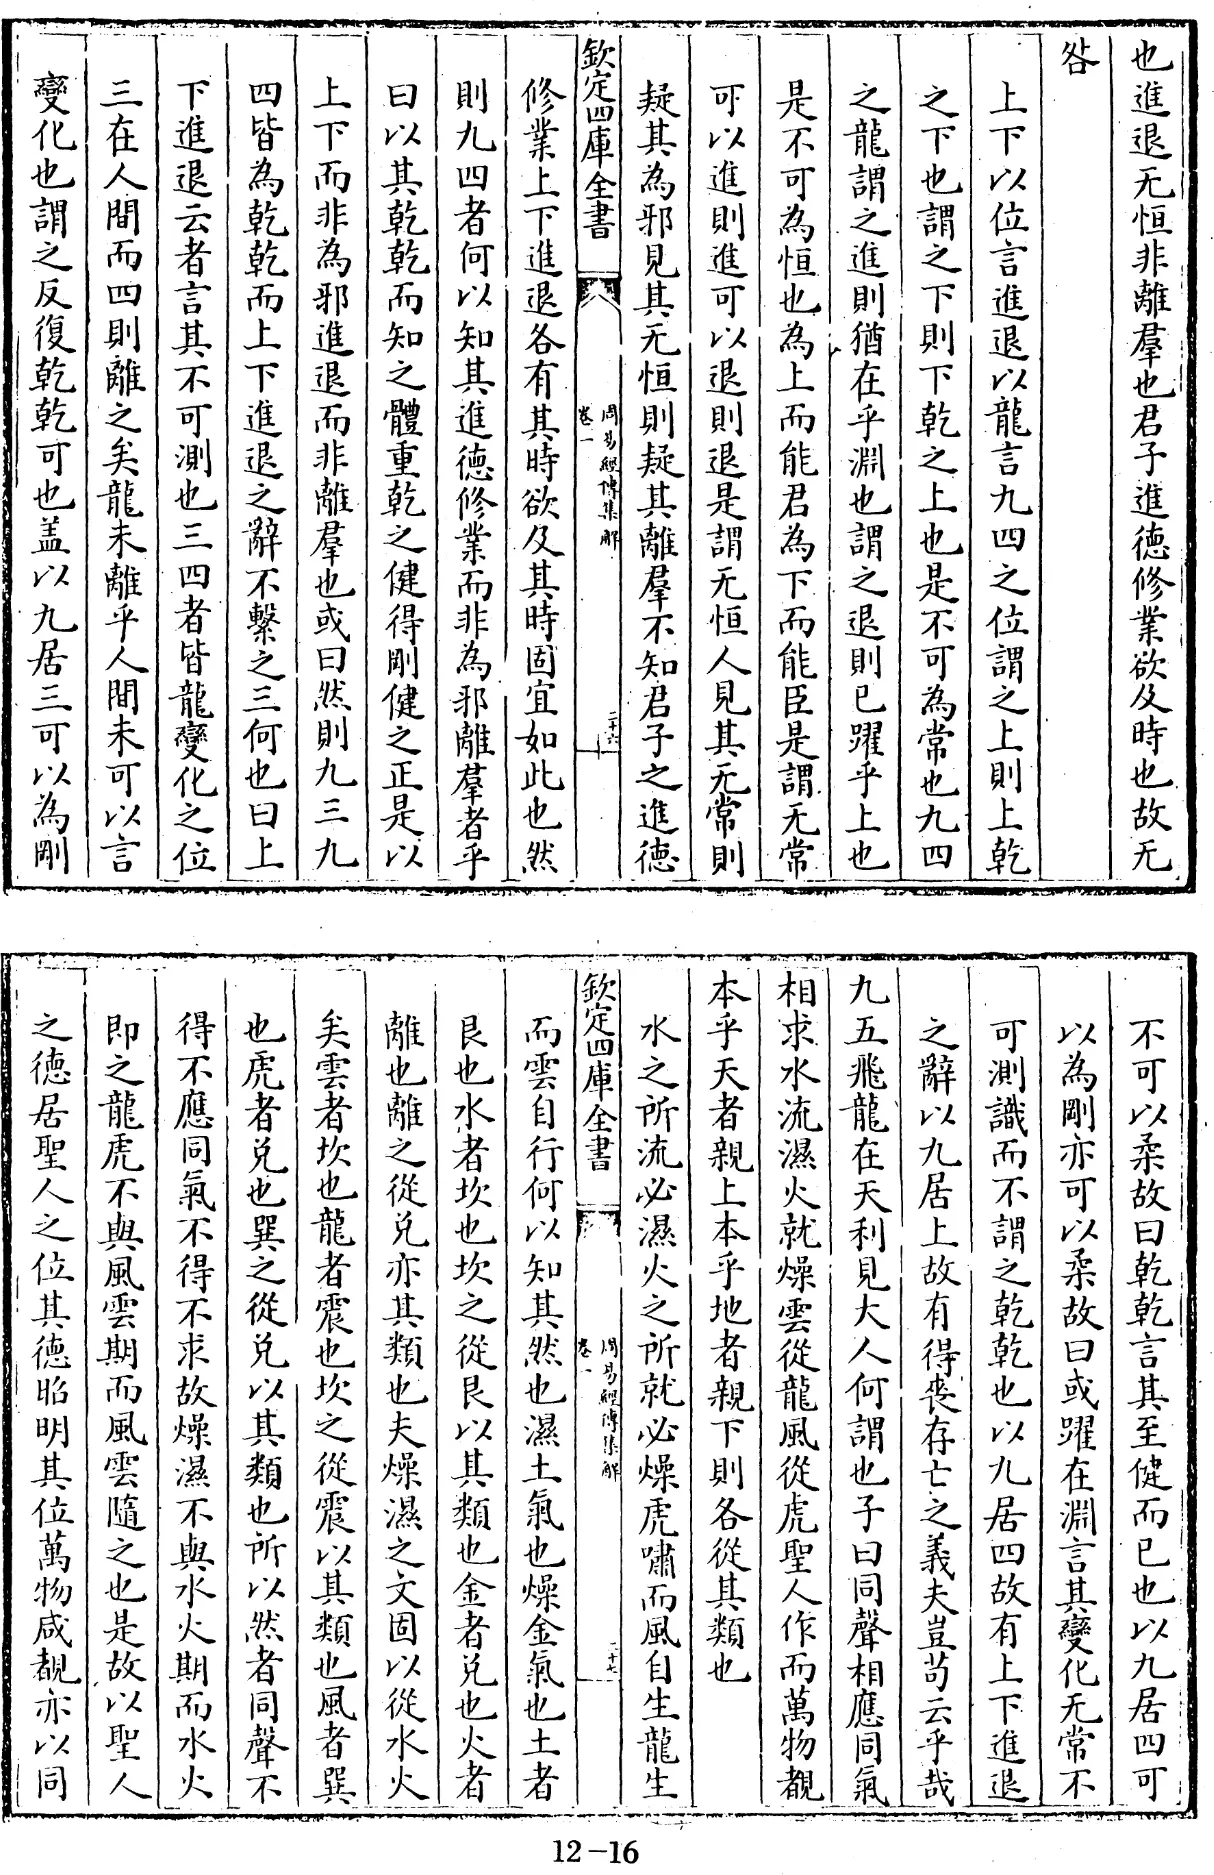 也進退无恒非離羣也君子進德修業欲及時也故无
咎
上下以位言進退以龍言九四之位謂之上則上乾
之下也謂之下則下乾之上也是不可為常也九四
之龍謂之進則猶在乎淵也謂之退則已躍乎上也
是不可為恒也為上而能君為下而能臣是謂无常
可以進則進可以退則退是謂无恒人見其无常則
疑其為邪見其无恒則疑其離羣不知君子之進德
欽定四庫全書
周易經傳集解
卷一
二十六
修業上下進退各有其時欲及其時固宜如此也然
則九四者何以知其進德修業而非為邪離羣者乎
曰以其乾乾而知之體重乾之健得剛健之正是以
上下而非為邪進退而非離羣也或曰然則九三九
四皆為乾乾而上下進退之辭不繫之三何也曰上
下進退云者言其不可測也三四者皆龍變化之位
三在人間而四則離之矣龍未離乎人間未可以言
變化也謂之反復乾乾可也盖以九居三可以為剛
不可以柔故曰乾乾言其至健而已也以九居四可
以為剛亦可以柔故曰或躍在淵言其變化无常不
可測識而不謂之乾乾也以九居四故有上下進退
之辭以九居上故有得喪存亡之義夫豈苟云乎哉
九五飛龍在天利見大人何謂也子曰同聲相應同氣
相求水流濕火就燥雲從龍風從虎聖人作而萬物覩
本乎天者親上本乎地者親下則各從其類也
水之所流必濕火之所就必燥虎嘯而風自生龍生
欽定四庫全書
周易經傳集解
卷一
二十七
而雲自行何以知其然也濕土氣也燥金氣也土者
艮也水者坎也坎之從艮以其類也金者兌也火者
離也離之從兌亦其類也夫燥濕之文固以從水火
矣雲者坎也龍者震也坎之從震以其類也風者巽
也虎者兌也巽之從兌以其類也所以然者同聲不
得不應同氣不得不求故燥濕不與水火期而水火
即之龍虎不與風雲期而風雲隨之也是故以聖人
之德居聖人之位其德昭明其位萬物咸覩亦以同
12-16